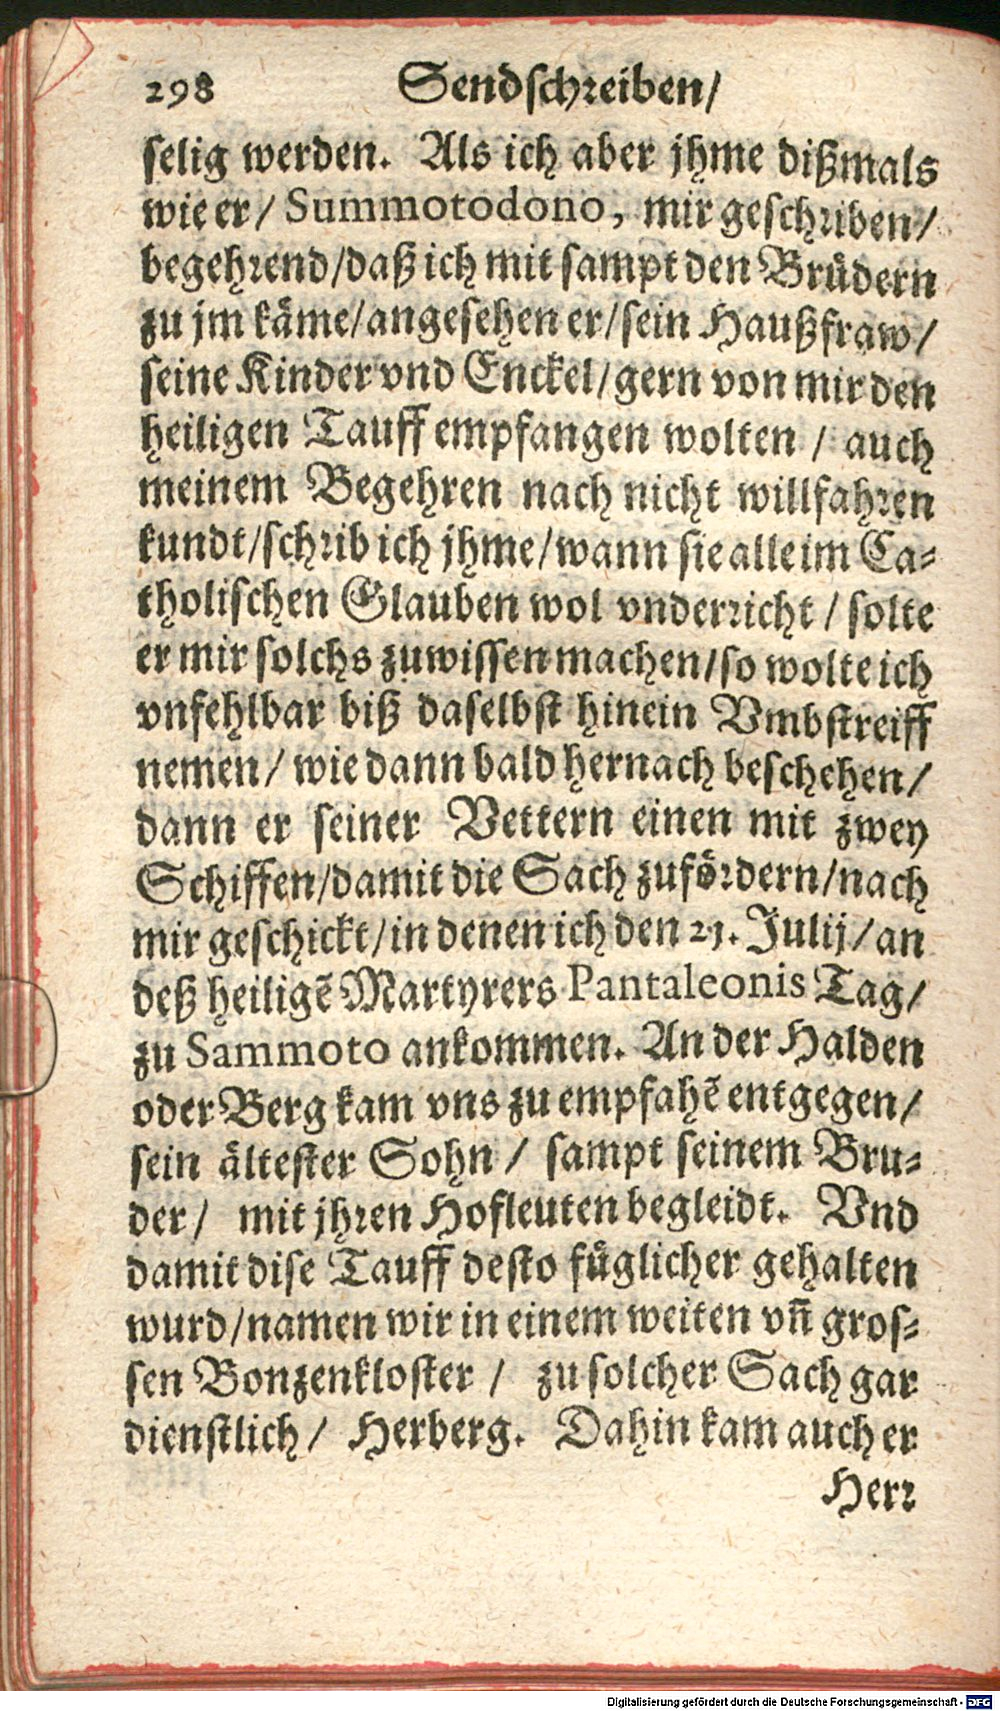 298 Sendschreiben/
selig werden. Als ich aber jhme dißmals
wie er/ Summotodono, mir geschriben/
begehrend/daß ich mit sampt den Brüdern
zu jm käme/angesehen er/sein Haußfraw/
seine Kinder vnd Enckel/gern von mir den
heiligen Tauff empfangen wolten / auch
meinem Begehren nach nicht willfahren
kundt/schrib ich jhme/wann sie alle im Ca-
tholischen Glauben wol vnderricht / solte
er mir solchs zuwissen machen/so wolte ich
vnfehlbar biß daselbst hinein Vmbstreiff
nemen/ wie dann bald hernach beschehen/
dann er seiner Vettern einen mit zwey
Schiffen/damit die Sach zufördern/nach
mir geschickt/in denen ich den 21. Julij/an
deß heiligẽ Martyrers Pantaleonis Tag/
zu Sammoto ankommen. An der Halden
oder Berg kam vns zu empfahẽ entgegen/
sein ältester Sohn / sampt seinem Bru-
der/ mit jhren Hofleuten begleidt. Vnd
damit dise Tauff desto füglicher gehalten
wurd/namen wir in einem weiten vñ gros-
sen Bonzenkloster / zu solcher Sach gar
dienstlich/ Herberg. Dahin kam auch er
Herr
Digitalisierung gefördert durch die Deutsche Forschungsgemeinschaft - DFG